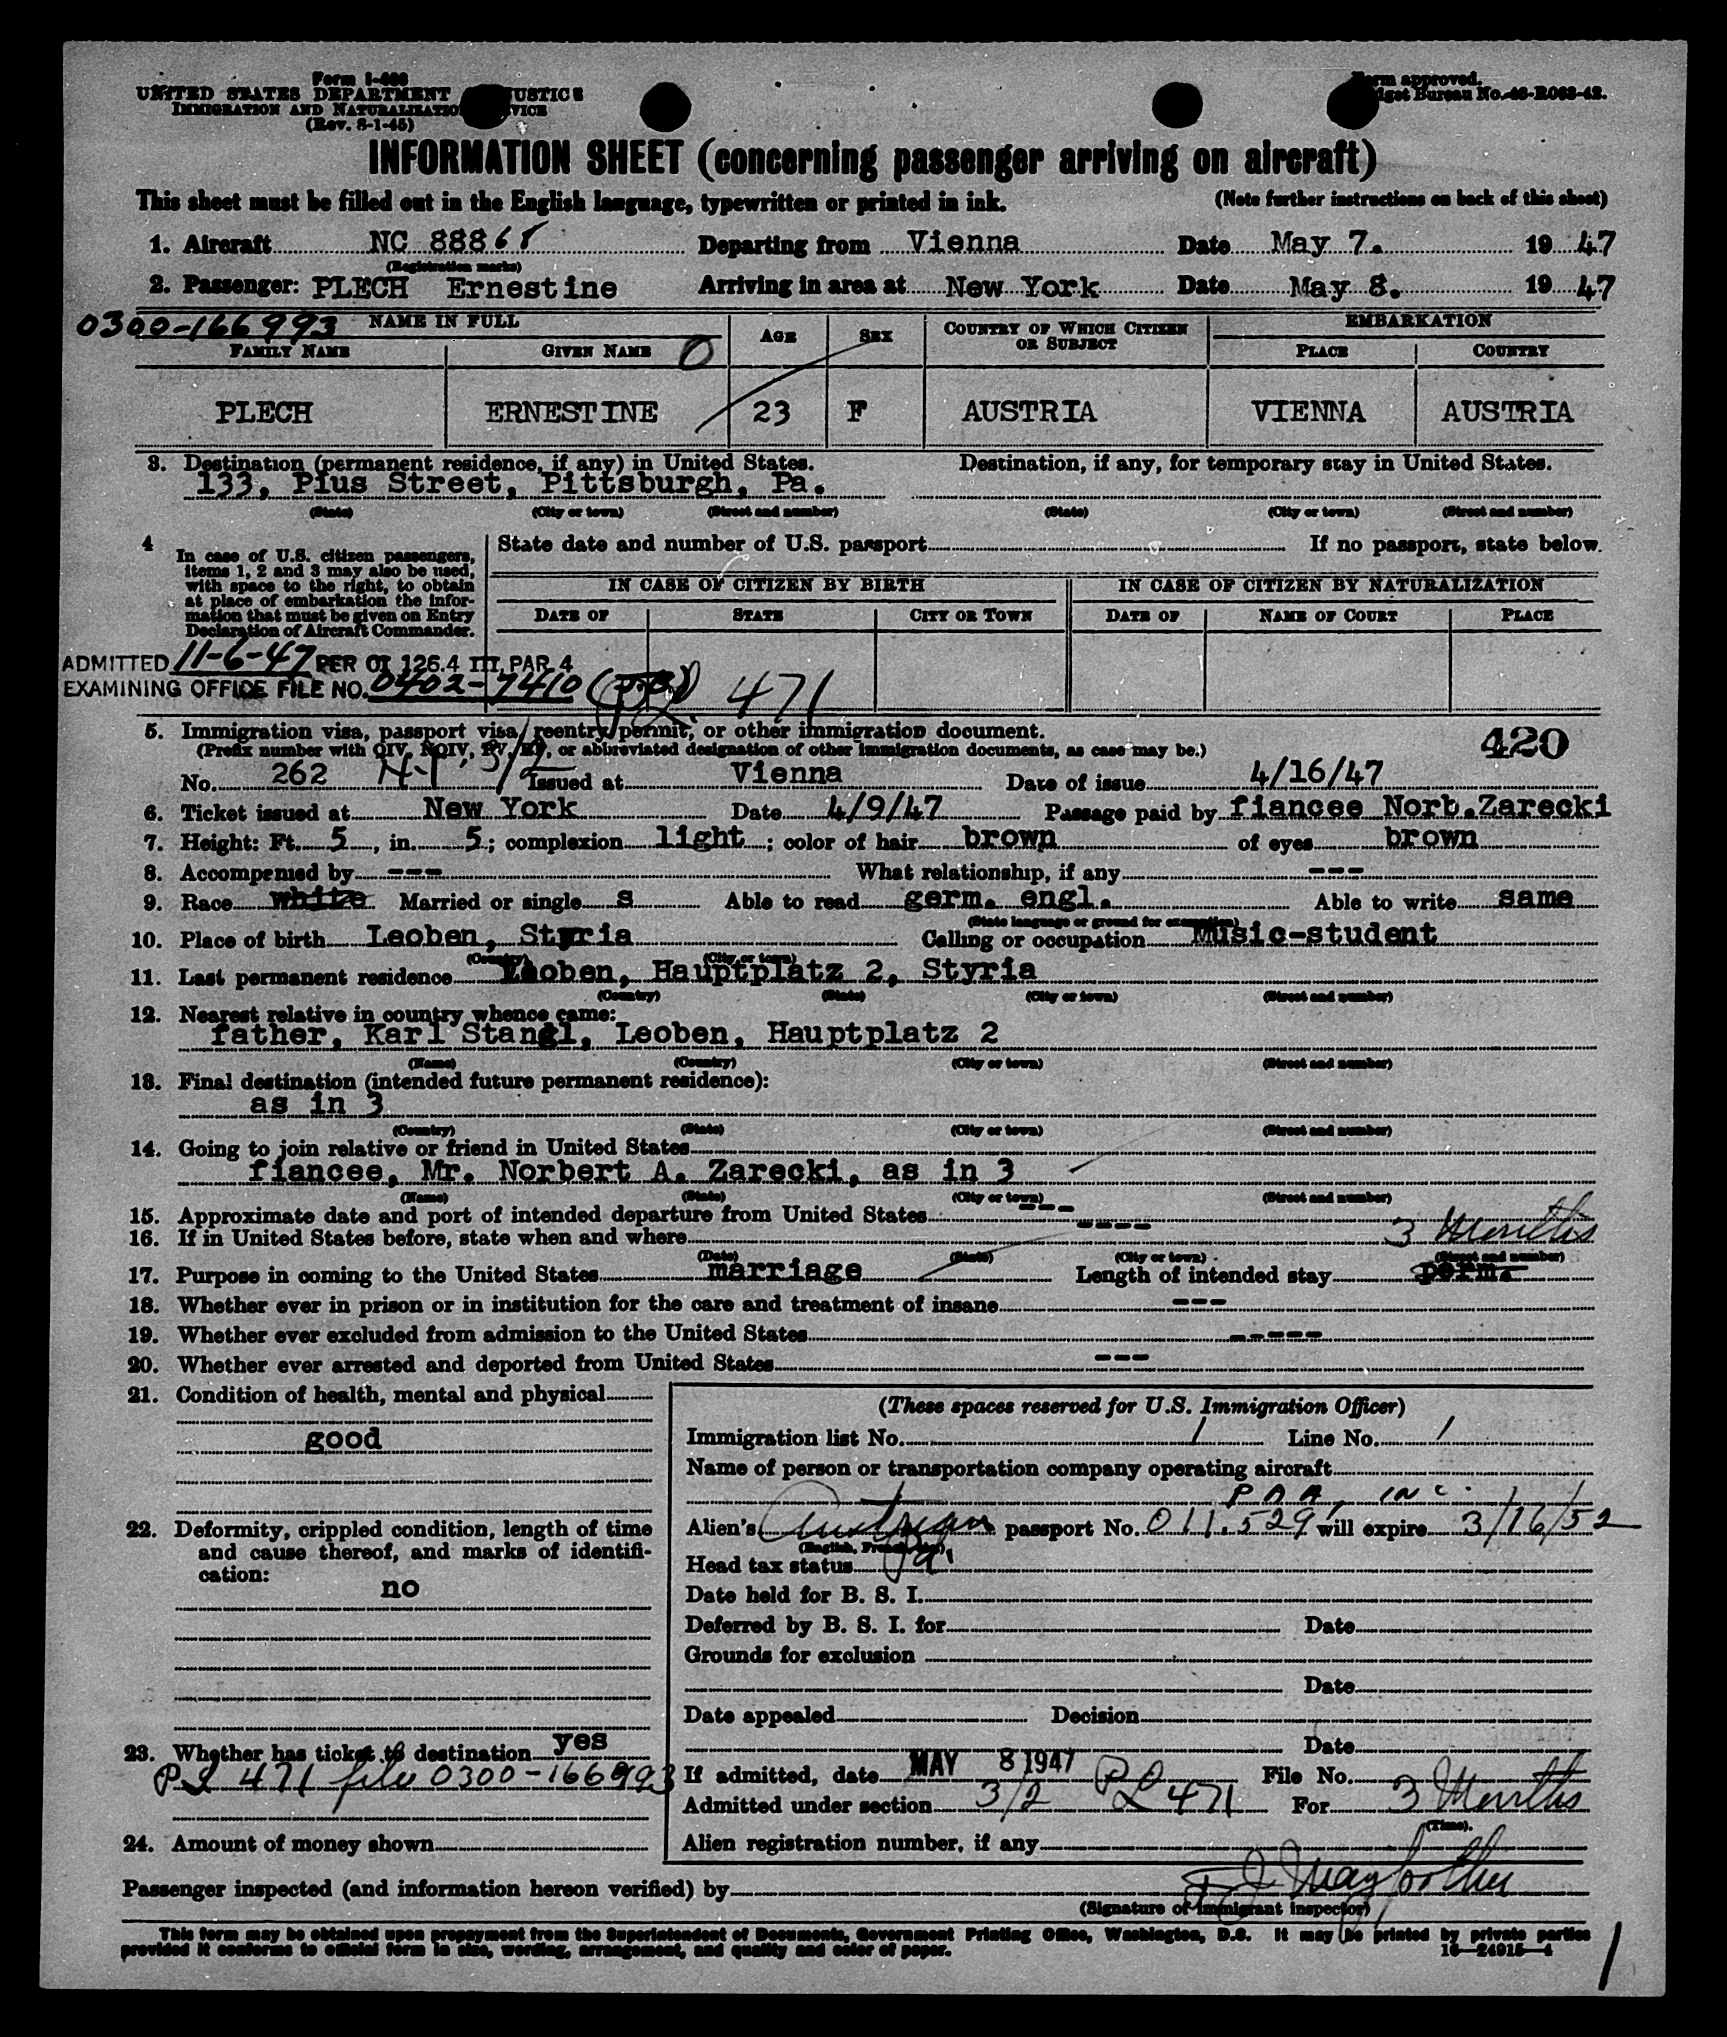 Form I-466
UNITED STATES DEPARTMENT JUSTICE
IMMIGRATION AND NATURALIZATION SERVICE
(Rev. 8-1-45)
Form approved.
Budget Bureau No. 43-R063-42.
INFORMATION SHEET (concerning passenger arriving on aircraft)
This sheet must be filled out in the English language, typewritten or printed in ink. (Note further instructions on back of this sheet)
1. Aircraft NC 88868 Departing from Vienna Date May 7. 19 47
(Registration marks)
2. Passenger: PLECH Ernestine Arriving in area at New York Date May 8. 19 47
0300-166993 NAME IN FULL AGE SEX COUNTRY OF WHICH CITIZEN OR SUBJECT EMBARKATION
FAMILY NAME GIVEN NAME O PLACE COUNTRY
PLECH ERNESTINE 23 F AUSTRIA VIENNA AUSTRIA
3. Destination (permanent residence, if any) in United States. Destination, if any, for temporary stay in United States.
133, Pius Street, Pittsburgh, Pa.
(State) (City or town) (Street and number) (State) (City or town) (Street and number)
4 In case of U.S. citizen passengers, items 1, 2 and 3 may also be used, with space to the right, to obtain at place of embarkation the information that must be given on Entry Declaration of Aircraft Commander.
State date and number of U.S. passport If no passport, state below.
IN CASE OF CITIZEN BY BIRTH IN CASE OF CITIZEN BY NATURALIZATION
DATE OF STATE CITY OR TOWN DATE OF NAME OF COURT PLACE
ADMITTED 11-6-47 PER OI 126.4 III, PAR 4
EXAMINING OFFICE FILE NO. 0402-7410 471
5. Immigration visa, passport visa, reentry permit, or other immigration document. 420
(Prefix number with QIV, NQIV, PV, RP, or abbreviated designation of other immigration documents, as case may be.)
No. 262 3/2 Issued at Vienna Date of issue 4/16/47
6. Ticket issued at New York Date 4/9/47 Passage paid by fiancee Norb.Zarecki
7. Height: Ft. 5, in. 5; complexion light; color of hair brown of eyes brown
8. Accompanied by --- What relationship, if any ---
9. Race white Married or single s Able to read germ. engl. Able to write same
(State language or ground for exemption)
10. Place of birth Leoben, Styria Calling or occupation Music-student
(Country) (City or town)
11. Last permanent residence Leoben, Hauptplatz 2, Styria
(Country) (State) (City or town) (Street and number)
12. Nearest relative in country whence came:
father, Karl Stangl, Leoben, Hauptplatz 2
(Name) (Country) (City or town) (Street and number)
13. Final destination (intended future permanent residence):
as in 3
(Country) (State) (City or town) (Street and number)
14. Going to join relative or friend in United States
fiancee, Mr. Norbert A. Zarecki, as in 3
(Name) (State) (City or town) (Street and number)
15. Approximate date and port of intended departure from United States ---
16. If in United States before, state when and where ---- 3 Months
(Date) (State) (City or town) (Street and number)
17. Purpose in coming to the United States marriage Length of intended stay perm.
18. Whether ever in prison or in institution for the care and treatment of insane ---
19. Whether ever excluded from admission to the United States -----
20. Whether ever arrested and deported from United States ---
21. Condition of health, mental and physical
good
22. Deformity, crippled condition, length of time and cause thereof, and marks of identification:
no
23. Whether has ticket to destination yes
PL 471 file 0300-166993
24. Amount of money shown
(These spaces reserved for U.S. Immigration Officer)
Immigration list No. 1 Line No. 1
Name of person or transportation company operating aircraft
PAA, INC.
Alien's Austrian passport No. 011.529 will expire 3/16/52
(English, French, etc.)
Head tax status
Date held for B. S. I.
Deferred by B. S. I. for Date
Grounds for exclusion
Date
Date appealed Decision
Date
If admitted, date MAY 8 1947 File No.
Admitted under section 3/2 PL 471 For 3 Months
(Time).
Alien registration number, if any
Passenger inspected (and information hereon verified) by
(Signature of immigrant inspector)
This form may be obtained upon prepayment from the Superintendent of Documents, Government Printing Office, Washington, D.C. It may be printed by private parties
provided it conforms to official form in size, wording, arrangement, and quality and color of paper. 16—24915-4
1